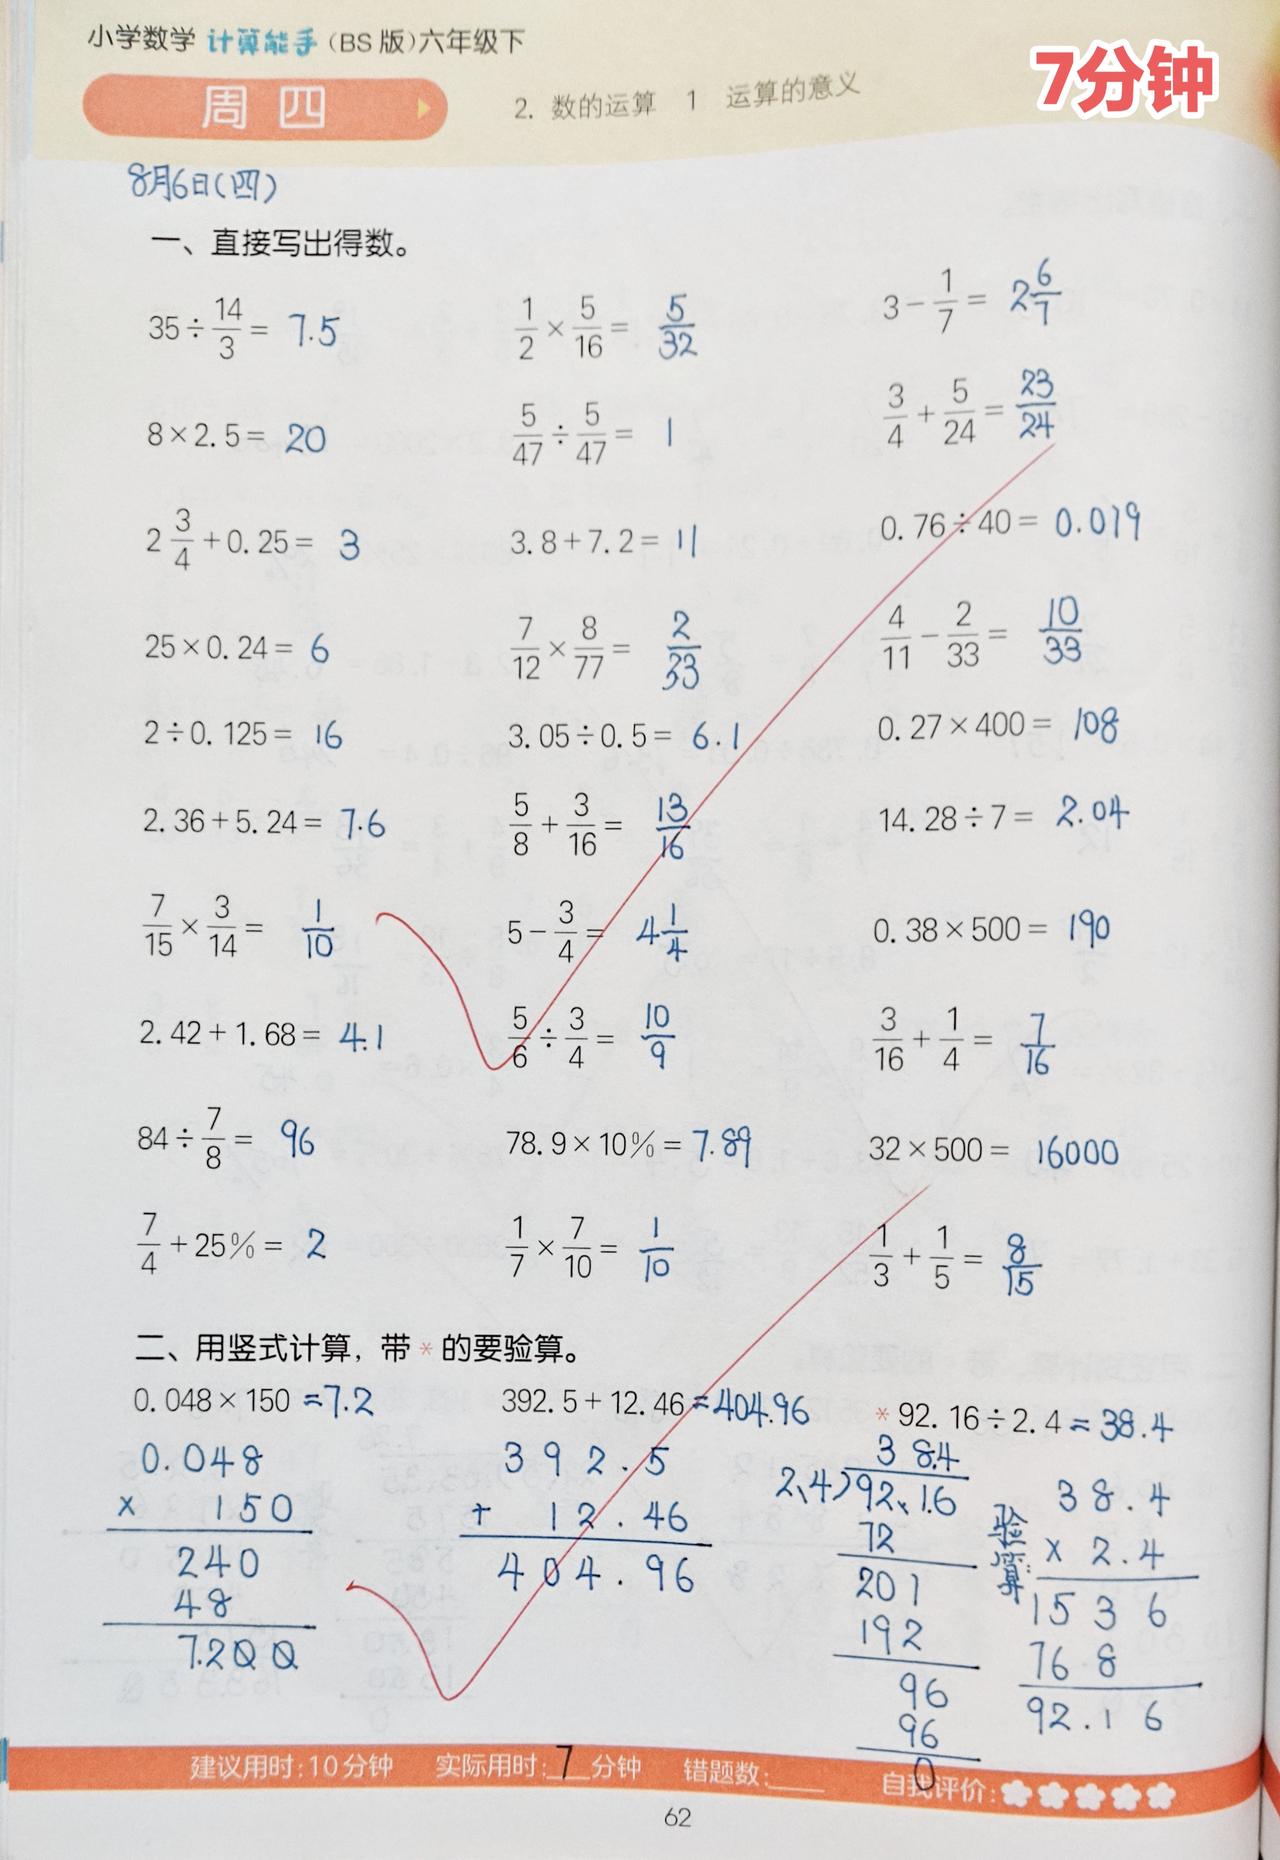 小学数学 计算能手（BS版）六年级下
7分钟
周四
2. 数的运算 1 运算的意义
8月6日(四)
一、直接写出得数。
35÷14/3= 7.5 1/2×5/16= 5/32 3−1/7= 2 6/7
8×2.5= 20 5/47÷5/47= 1 3/4+5/24= 23/24
2 3/4+0.25= 3 3.8+7.2= 11 0.76÷40= 0.019
25×0.24= 6 7/12×8/77= 2/33 4/11−2/33= 10/33
2÷0.125= 16 3.05÷0.5= 6.1 0.27×400= 108
2.36+5.24= 7.6 5/8+3/16= 13/16 14.28÷7= 2.04
7/15×3/14= 1/10 5−3/4= 4 1/4 0.38×500= 190
2.42+1.68= 4.1 5/6÷3/4= 10/9 3/16+1/4= 7/16
84÷7/8= 96 78.9×10%= 7.89 32×500= 16000
7/4+25%= 2 1/7×7/10= 1/10 1/3+1/5= 8/15
二、用竖式计算，带*的要验算。
0.048×150=7.2 392.5+12.46=404.96 *92.16÷2.4=38.4
0.048
× 150
240
48
7.200
392.5
+ 12.46
404.96
38.4
2.4)92.16
72
201
192
96
96
0
验算:
38.4
× 2.4
1536
768
92.16
建议用时:10分钟 实际用时:7分钟 错题数:____ 自我评价:
62